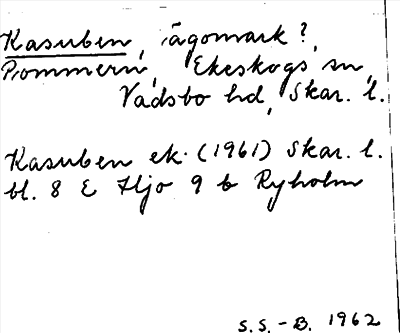 Kasuben, ägomark?,
Pommern, Ekeskogs sn,
Vadsbo hd, Skar. l.
Kasuben ek. (1961) Skar. l.
bl. 8 E Hjo 9 b Ryholm
S.S.-B. 1962